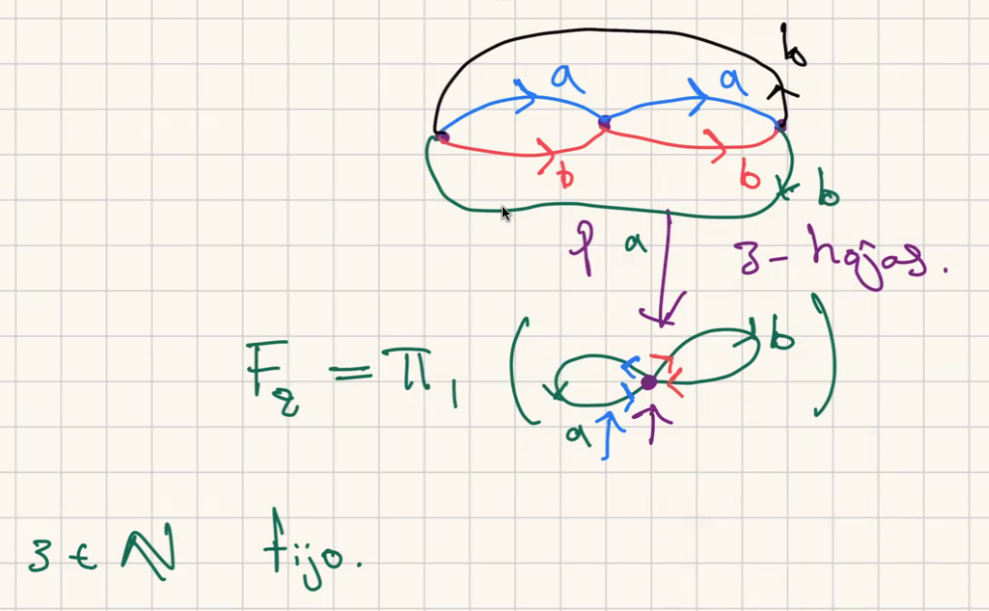 b
a a
b b b
p a 3- hojas.
F₂ = π₁ ( a b )
3 ∈ ℕ fijo.